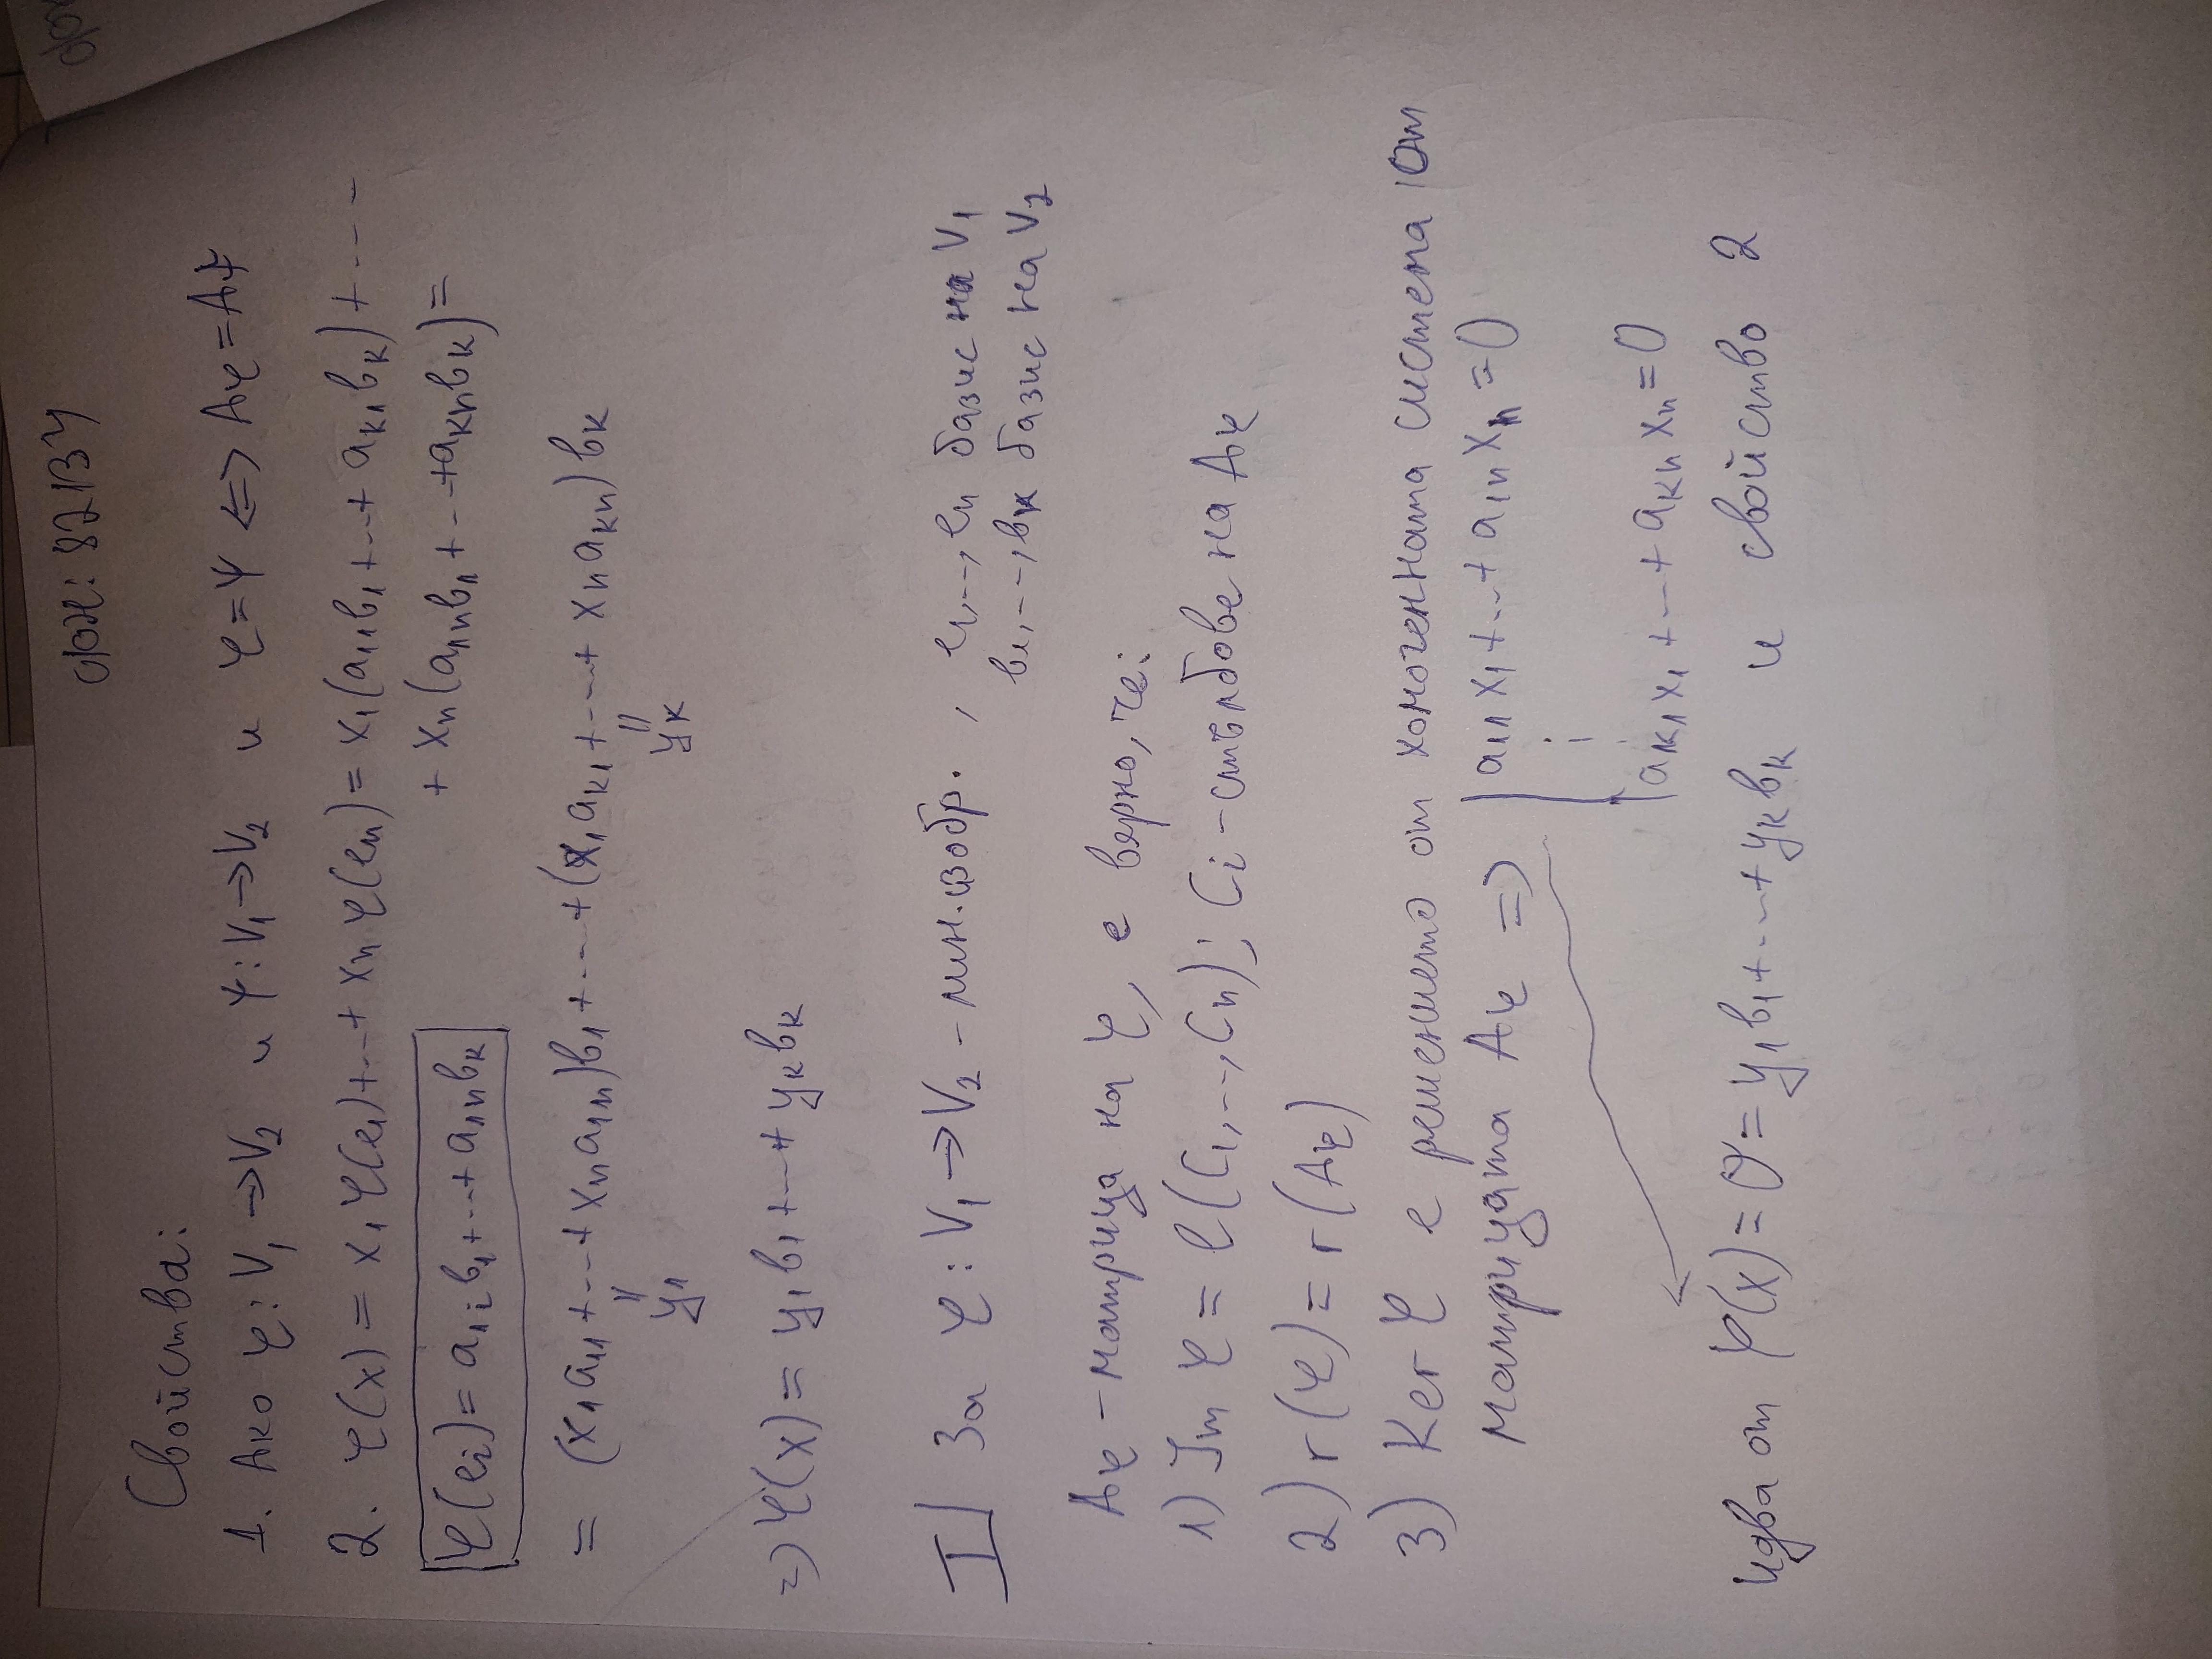 фн: 82134
Свойства:
1. Ако φ: V₁ → V₂ и Ψ: V₁ → V₂ и φ = Ψ <=> Aφ = AΨ
2. φ(x) = x₁φ(e₁)+...+ xₙφ(eₙ) = x₁(a₁₁b₁+...+ aₖ₁bₖ)+ ...
+ xₙ(a₁ₙb₁+...+aₖₙbₖ) =
φ(eᵢ) = a₁ᵢb₁+...+ a₁ₙbₖ
= (x₁a₁₁+...+ xₙa₁ₙ)b₁+...+(x₁aₖ₁+...+ xₙaₖₙ)bₖ
= =
y₁ yₖ
=> φ(x) = y₁b₁+...+ yₖbₖ
I За φ: V₁ → V₂ - лин.изобр., e₁,...,eₙ базис на V₁
b₁,...,bₖ базис на V₂
Aφ - матрица на φ, е вярно, че:
1) Im φ = l(C₁,...,Cₙ); Cᵢ - стълбове на Aφ
2) r(φ) = r(Aφ)
3) Ker φ е решението от хомогенната система от
матрицата Aφ => | a₁₁x₁+...+ a₁ₙxₙ = 0
⋮
aₖ₁x₁+...+ aₖₙxₙ = 0
идва от φ(x) = O = y₁b₁+...+yₖbₖ и свойство 2